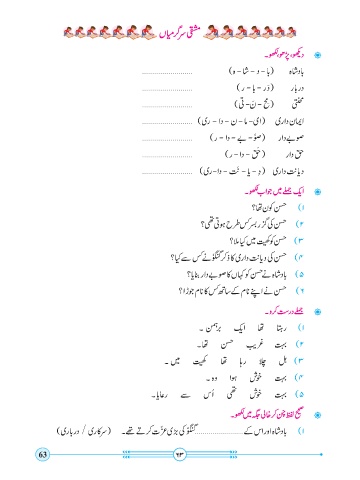 مشقی سرگرمیاں
دیکھو، پڑھو، لکھو۔
بادشاہ (با - د - شا - ہ) ........................
دربار (دَر - با - ر) ........................
محنتی (مح - نَ - تی) ........................
ایمان داری (ای - ما - ن - دا - ری) ........................
صوبے دار (صوٗ - بے - دا - ر) ........................
حق دار (حَق - دا - ر) ........................
دیانت داری (دِ - یا - نَت - دا - ری) ........................
ایک جملے میں جواب لکھو۔
۱) حسن کون تھا؟
۲) حسن کی گزر بسر کس طرح ہوتی تھی؟
۳) حسن کو کھیت میں کیا ملا؟
۴) حسن کی دیانت داری کا ذکر گنگو نے کس سے کیا؟
۵) بادشاہ نے حسن کو کہاں کا صوبے دار بنایا؟
۶) حسن نے اپنے نام کے ساتھ کس کا نام جوڑا؟
جملے درست کرو۔
۱) رہتا تھا ایک برہمن ۔
۲) بہت غریب حسن تھا۔
۳) ہل چلا رہا تھا کھیت میں ۔
۴) بہت خوش ہوا وہ ۔
۵) بہت خوش تھی اُس سے رعایا۔
صحیح لفظ چن کر خالی جگہ میں لکھو۔
۱) بادشاہ اور اس کے ........................ گنگو کی بڑی عزّت کرتے تھے۔ (سرکاری / درباری)
63 ۶۳